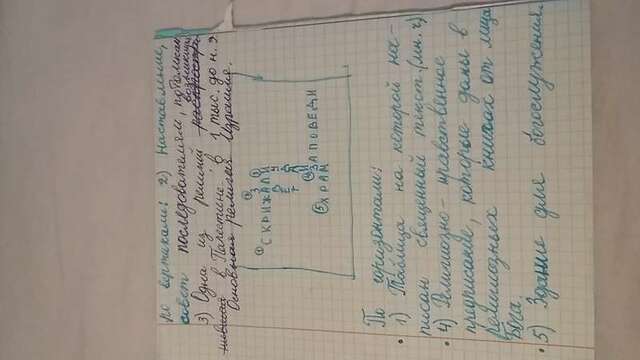 по вертикали: 2) Наставление,
совет последователям, потомкам
возникшая
3) Одна из религий
в Палестине в 1 тыс. до н. э
Основная религия Израиля.
② ③
① СКРИЖАЛИ
ЗАВЕТ
ИУДАИЗМ
④ ЗАПОВЕДИ
⑤ ХРАМ
По горизонтали:
1) Таблица на которой на-
писан священный текст. (мн. ч)
4) Религиозно-нравственное
предписание, которые даны в
религиозных книгах от лица
Бога.
5) Здание для богослужения.